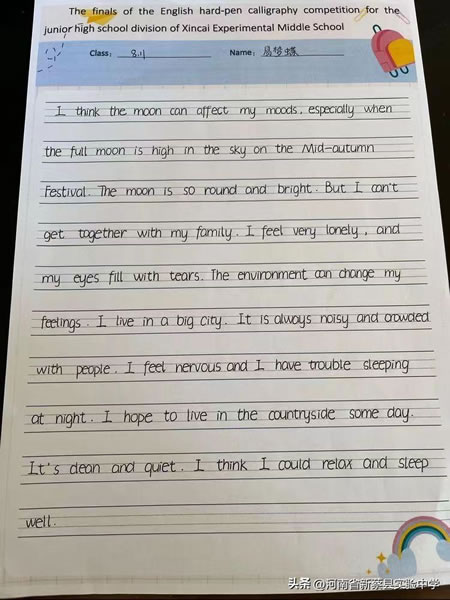 The finals of the English hard-pen calligraphy competition for the
junior high school division of Xincai Experimental Middle School
Class: 8.11 Name: 易梦蝶
I think the moon can affect my moods, especially when
the full moon is high in the sky on the Mid-autumn
Festival. The moon is so round and bright. But I can't
get together with my family. I feel very lonely, and
my eyes fill with tears. The environment can change my
feelings. I live in a big city. It is always noisy and crowded
with people. I feel nervous and I have trouble sleeping
at night. I hope to live in the countryside some day.
It's clean and quiet. I think I could relax and sleep
well.
头条 @河南省新蔡县实验中学